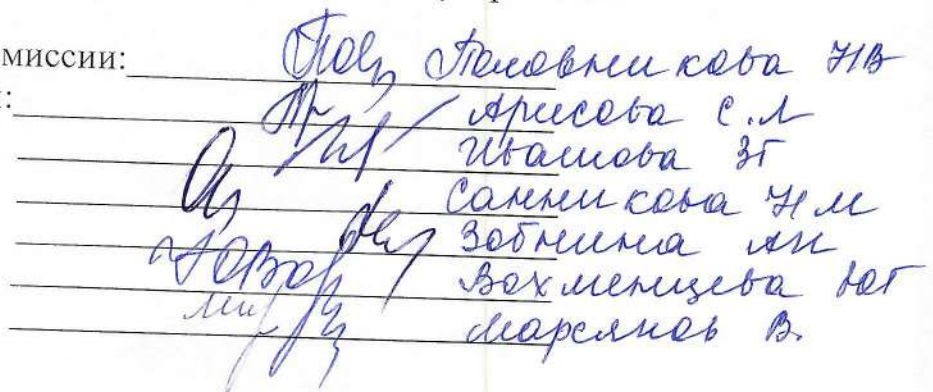 миссии: Половникова НВ
: Арисова С.Л
Ивашова ЗГ
Санникова Н М
Зобнина АН
Вохменцева ЮГ
Марсянов В.